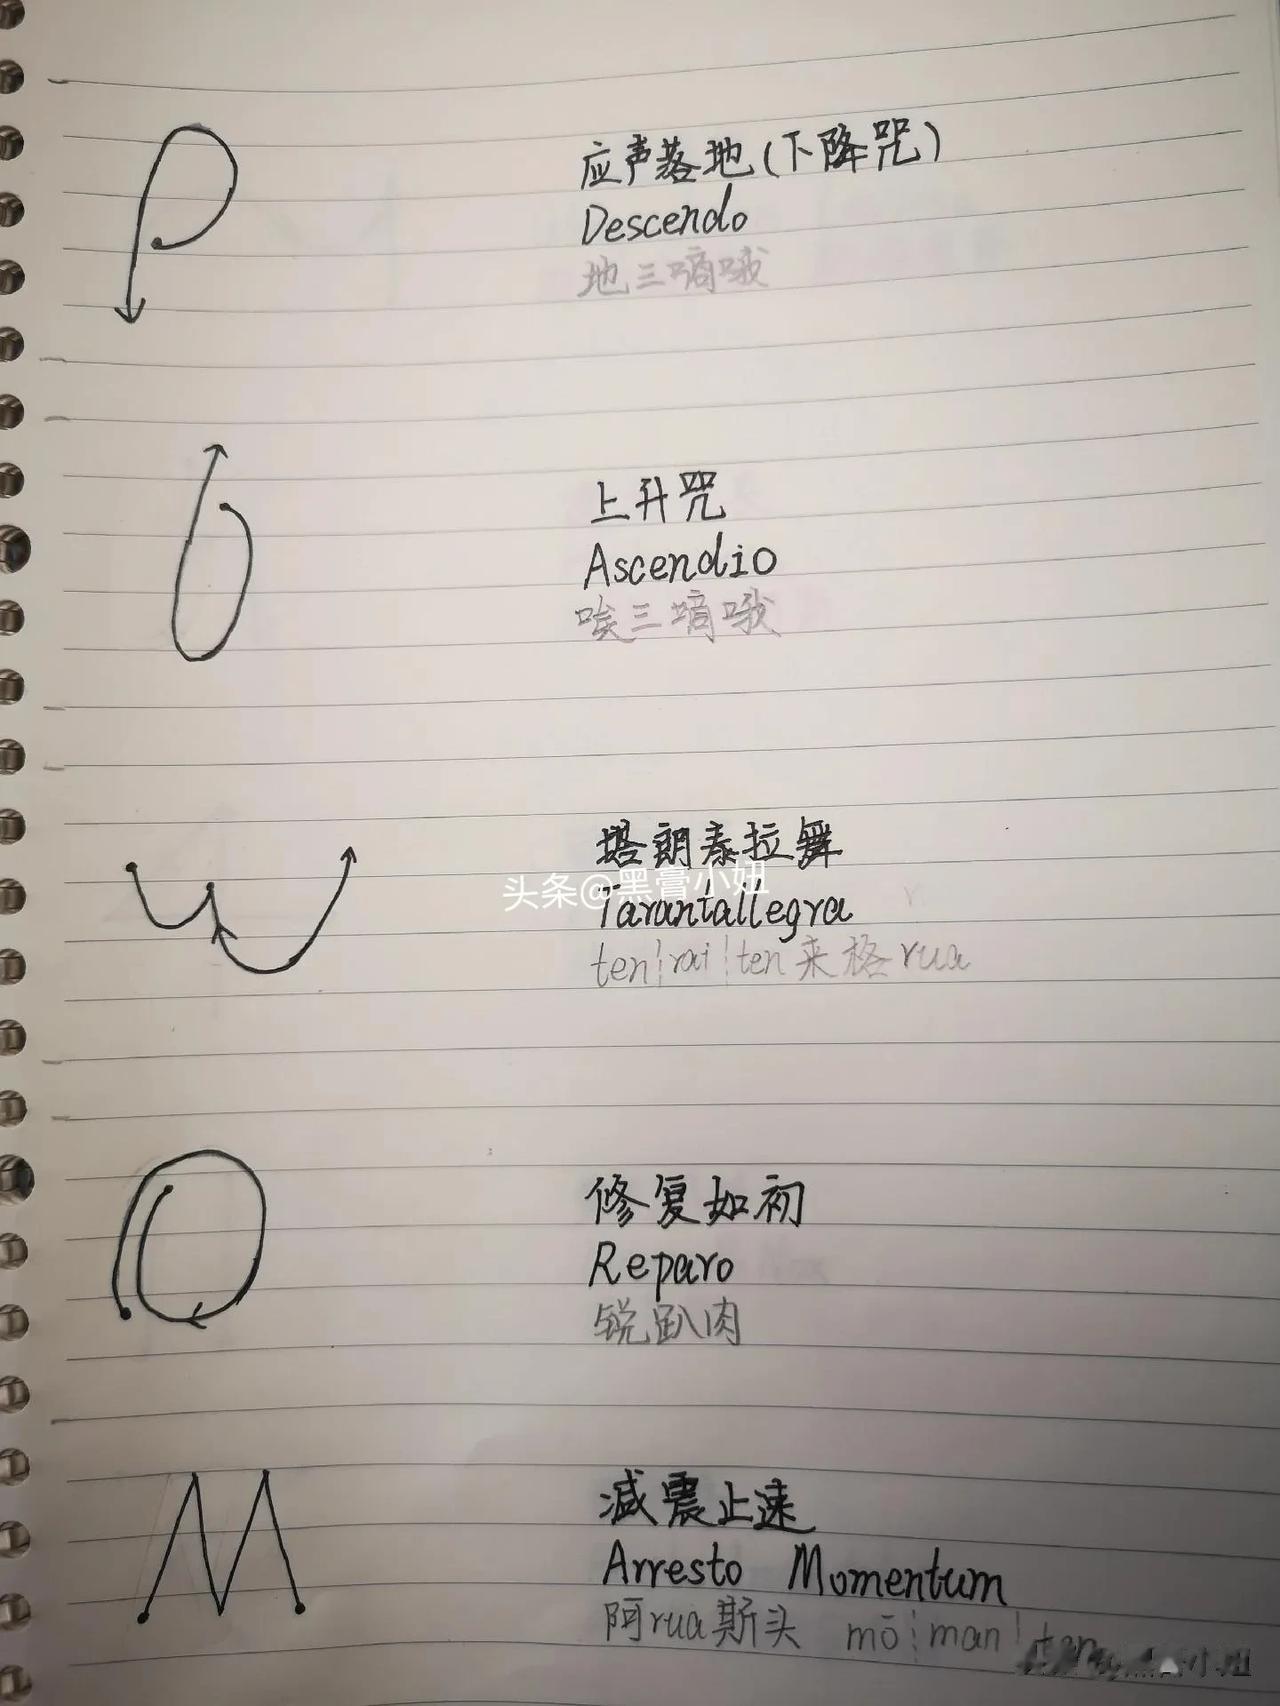 应声落地(下降咒)
Descendo
地三嘀哦
上升咒
Ascendio
唉三嘀哦
塔朗泰拉舞
头条@黑膏小妞
Tarantallegra
ten¦rai¦ten来格rua
修复如初
Reparo
锐趴肉
减震止速
Arresto Momentum
阿rua斯头 mō¦man¦
小妞